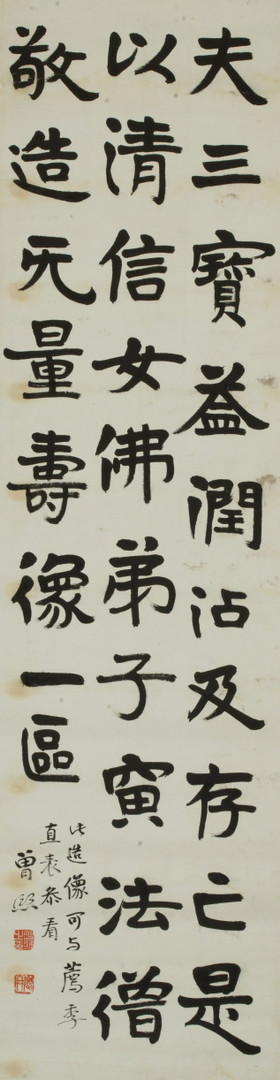 夫三寶益潤沾及存亡是
以清信女佛弟子寅法僧
敬造无量壽像一區
此造像可与薦季
直表叅看
曾熙